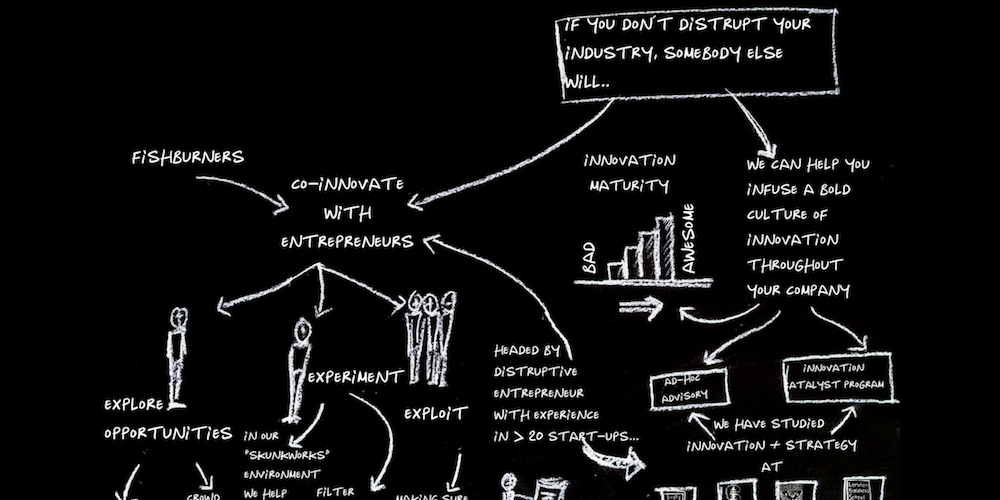 IF YOU DON'T DISTRUPT YOUR
INDUSTRY, SOMEBODY ELSE
WILL..
FISHBURNERS
CO-INNOVATE
WITH
ENTREPRENEURS
INNOVATION
MATURITY
BAD
AWESOME
WE CAN HELP YOU
INFUSE A BOLD
CULTURE OF
INNOVATION
THROUGHOUT
YOUR COMPANY
EXPLORE
OPPORTUNITIES
EXPERIMENT
EXPLOIT
HEADED BY
DISTRUPTIVE
ENTREPRENEUR
WITH EXPERIENCE
IN > 20 START-UPS...
AD-HOC
ADVISORY
INNOVATION
CATALYST PROGRAM
WE HAVE STUDIED
INNOVATION + STRATEGY
AT
IN OUR
"SKUNKWORKS"
ENVIRONMENT
WE HELP
FILTER
CROWD
MAKING SURE
London
Business
School